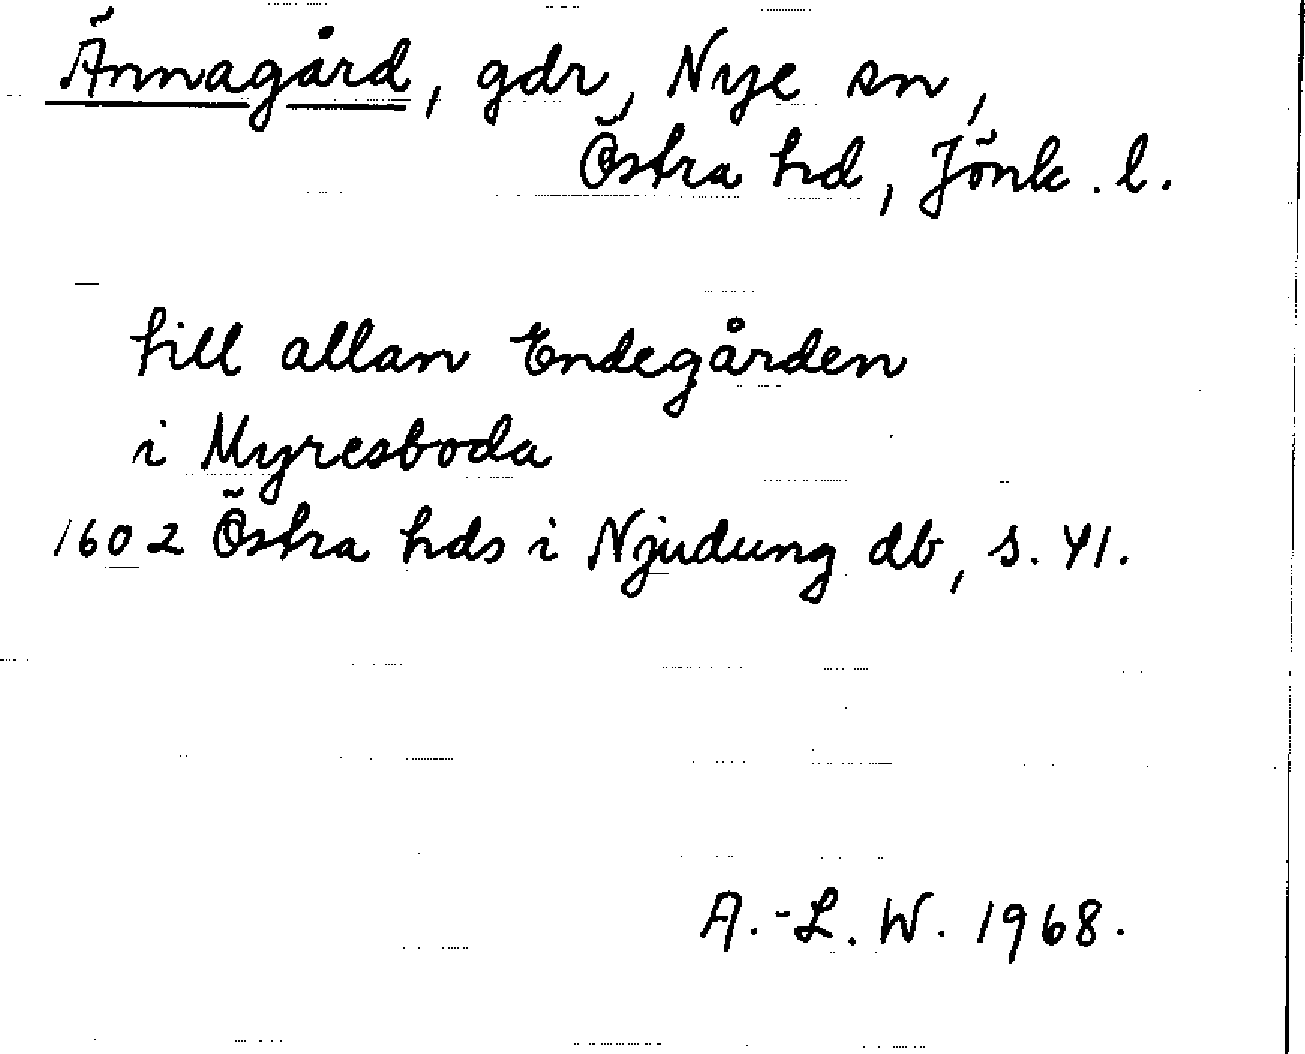 Ännagård, gdr, Nye sn,
Östra hd, Jönk. l.
till allan Endegården
i Myresboda
1602 Östra hds i Njudung db, s. 41.
A.-L. W. 1968.